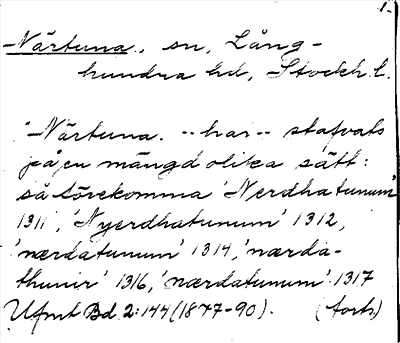 1.
Närtuna, sn, Lång-
hundra hd, Stockh. l.
"Närtuna. -- har -- stafvats
på en mängd olika sätt:
så förekomma 'Nerdhatunum'
1311, 'Nyerdhatunum' 1312,
'nærdatunum' 1314, 'nærda-
thunir' 1316, 'nærdatunum' 1317
Ufmt Bd. 2: 144 (1877-90). (forts)